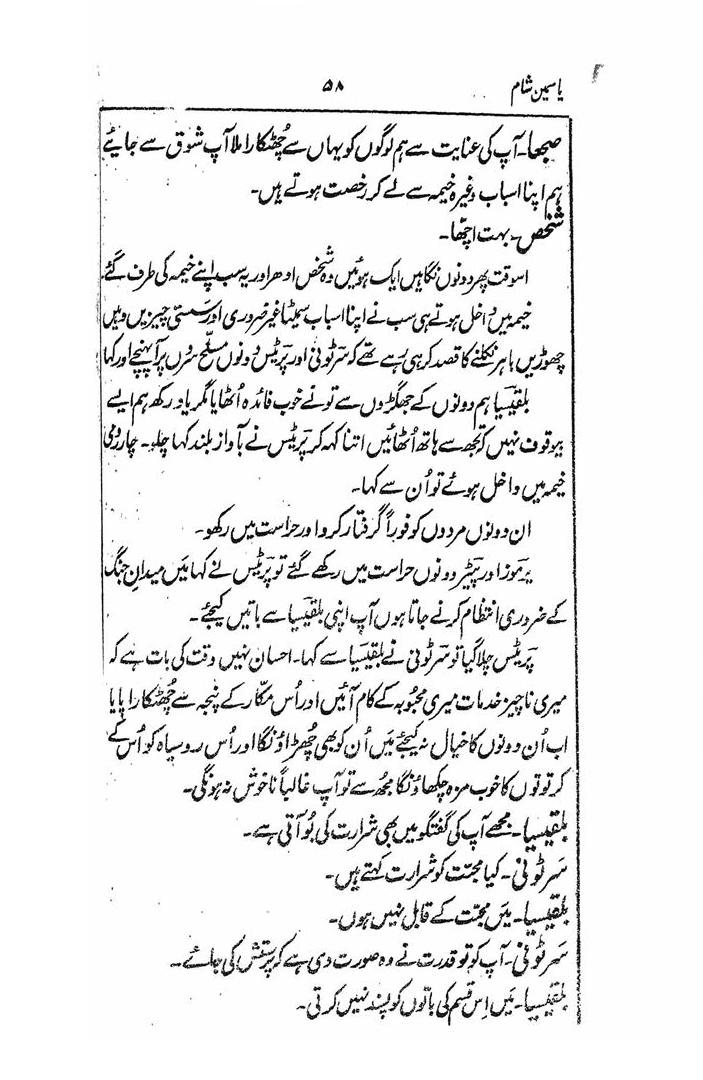 یاسمین شام ۵۸
صجعا۔ آپ کی عنایت سے ہم لوگوں کو یہاں سے چُھٹکارا ملا آپ شوق سے جائیے
ہم اپنا اسباب وغیرہ خیمہ سے لے کر رخصت ہوتے ہیں۔
شخص۔ بہت اچّھا۔
اسوقت پھر دونوں نگاہیں ایک ہوئیں وہ شخص ادھر اور یہ سب اپنے خیمہ کی طرف گئے
خیمہ میں داخل ہوتے ہی سب نے اپنا اسباب سمیٹا غیر ضروری اور سستی چیزیں وہیں
چھوڑیں باہر نکلنے کا قصد کر ہی رہے تھے کہ سرٹونی اور پرٹیس دونوں مسلّح سروں پر آ پہنچے اور کہا
بلقیسیا ہم دونوں کے جھگڑوں سے تو نے خوب فائدہ اُٹھایا مگر یاد رکھ ہم ایسے
بیوقوف نہیں کہ تجھ سے ہاتھ اُٹھائیں اتنا کہہ کر پرٹیس نے بآواز بلند کہا چلو۔ چار رومی
خیمہ میں داخل ہوئے تو اُن سے کہا۔
ان دونوں مردوں کو فوراً گرفتار کرو اور حراست میں رکھو۔
یرموز اور پیٹر دونوں حراست میں رکھے گئے تو پرٹیس نے کہا میں میدانِ جنگ
کے ضروری انتظام کرنے جاتا ہوں آپ اپنی بلقیسیا سے باتیں کیجئے۔
پرٹیس چلا گیا تو سرٹونی نے بلقیسیا سے کہا۔ احسان نہیں وقت کی بات ہے کہ
میری ناچیز خدمات میری محبوبہ کے کام آئیں اور اُس مکّار کے پنجہ سے چُھٹکارا پایا
اب اُن دونوں کا خیال نہ کیجئے میں اُن کو بھی چُھڑاؤنگا اور اُس روسیاہ کو اُس کے
کرتوتوں کا خوب مزہ چکھاؤنگا مجھ سے تو آپ غالباً ناخوش نہ ہونگی۔
بلقیسیا۔ مجھے آپ کی گفتگو میں بھی شرارت کی بُو آتی ہے۔
سرٹونی۔ کیا محبّت کو شرارت کہتے ہیں۔
بلقیسیا۔ میں محبّت کے قابل نہیں ہوں۔
سرٹونی۔ آپ کو تو قدرت نے وہ صورت دی ہے کہ پرستش کی جائے۔
بلقیسیا۔ میں اِس قسم کی باتوں کو پسند نہیں کرتی۔